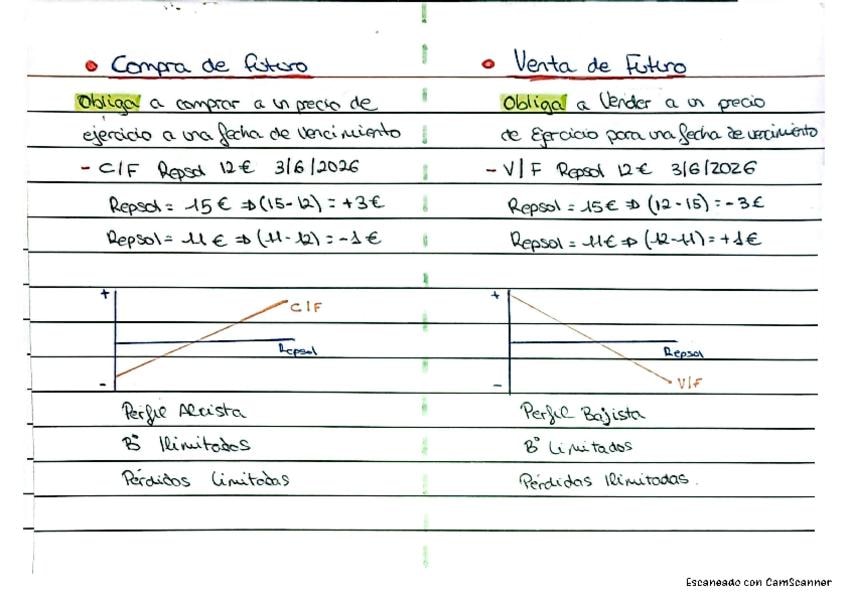 • Compra de futuro
Obliga a comprar a un precio de
ejercicio a una fecha de vencimiento
- C/F Repsol 12€ 3/6/2026
Repsol = 15€ ⇒ (15-12) = +3€
Repsol = 11€ ⇒ (11-12) = -1€
+
C/F
Repsol
-
Perfil Alcista
Bº Ilimitados
Pérdidas Limitadas
• Venta de Futuro
Obliga a Vender a un precio
de Ejercicio para una fecha de vencimiento
- V/F Repsol 12€ 3/6/2026
Repsol = 15€ ⇒ (12-15) = -3€
Repsol = 11€ ⇒ (12-11) = +1€
+
Repsol
-
V/F
Perfil Bajista
Bº Limitados
Pérdidas Ilimitadas.
Escaneado con CamScanner